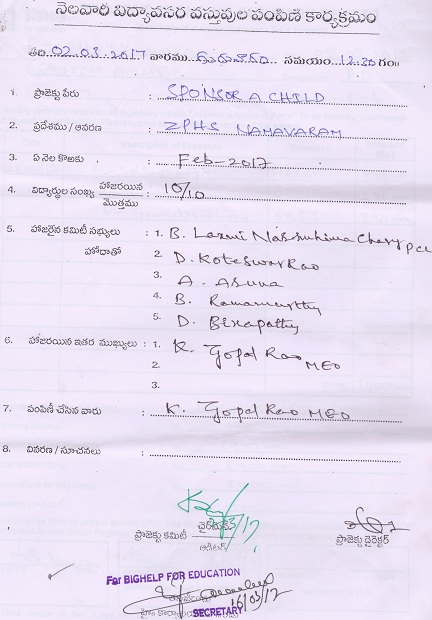 నెలవారి విద్యావసర వస్తువుల పంపిణి కార్యక్రమం
తేది. 02.03.2017 వారము గురువారం సమయం 12.30 గం॥
1. ప్రాజెక్టు పేరు : SPONSOR A CHILD
2. ప్రదేశము / ఆవరణ : ZPHS NAMAVARAM
3. ఏ నెల కొఱకు : Feb-2017
4. విద్యార్థుల సంఖ్య హాజరయిన / మొత్తము : 10/10
5. హాజరైన కమిటీ సభ్యులు : 1. B. Laxmi Narsimha Chary
హోదాతో 2. D. Koteswar Rao
3. A. Aruna
4. B. Ramamurthy
5. D. Bixapathy
6. హాజరయిన ఇతర ముఖ్యులు : 1. K. Gopal Rao MEO
2.
3.
7. పంపిణీ చేసిన వారు : K. Gopal Rao MEO
8. వివరణ / సూచనలు :
ప్రాజెక్టు కమిటీ చైర్మన్ / ఆడిటర్
ప్రాజెక్టు డైరెక్టర్
For BIGHELP FOR EDUCATION
16/03/17
SECRETARY